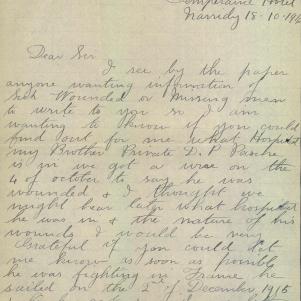 Temperance Hotel
18-10-191
Dear Sir
I see by the paper
anyone wanting information of
Sick Wounded or Missing men
to write to you so I am
wanting to know if you could
find out for me what Hospital
my Brother Private D. P.
is in we got a wire on the
4 of october to say he was
wounded & I thought we
might hear later what hospital
he was in & the nature of his
wounds I would be very
Grateful if you could let
me know as soon as possible
he was fighting in France he
sailed on the 2nd of December 1915